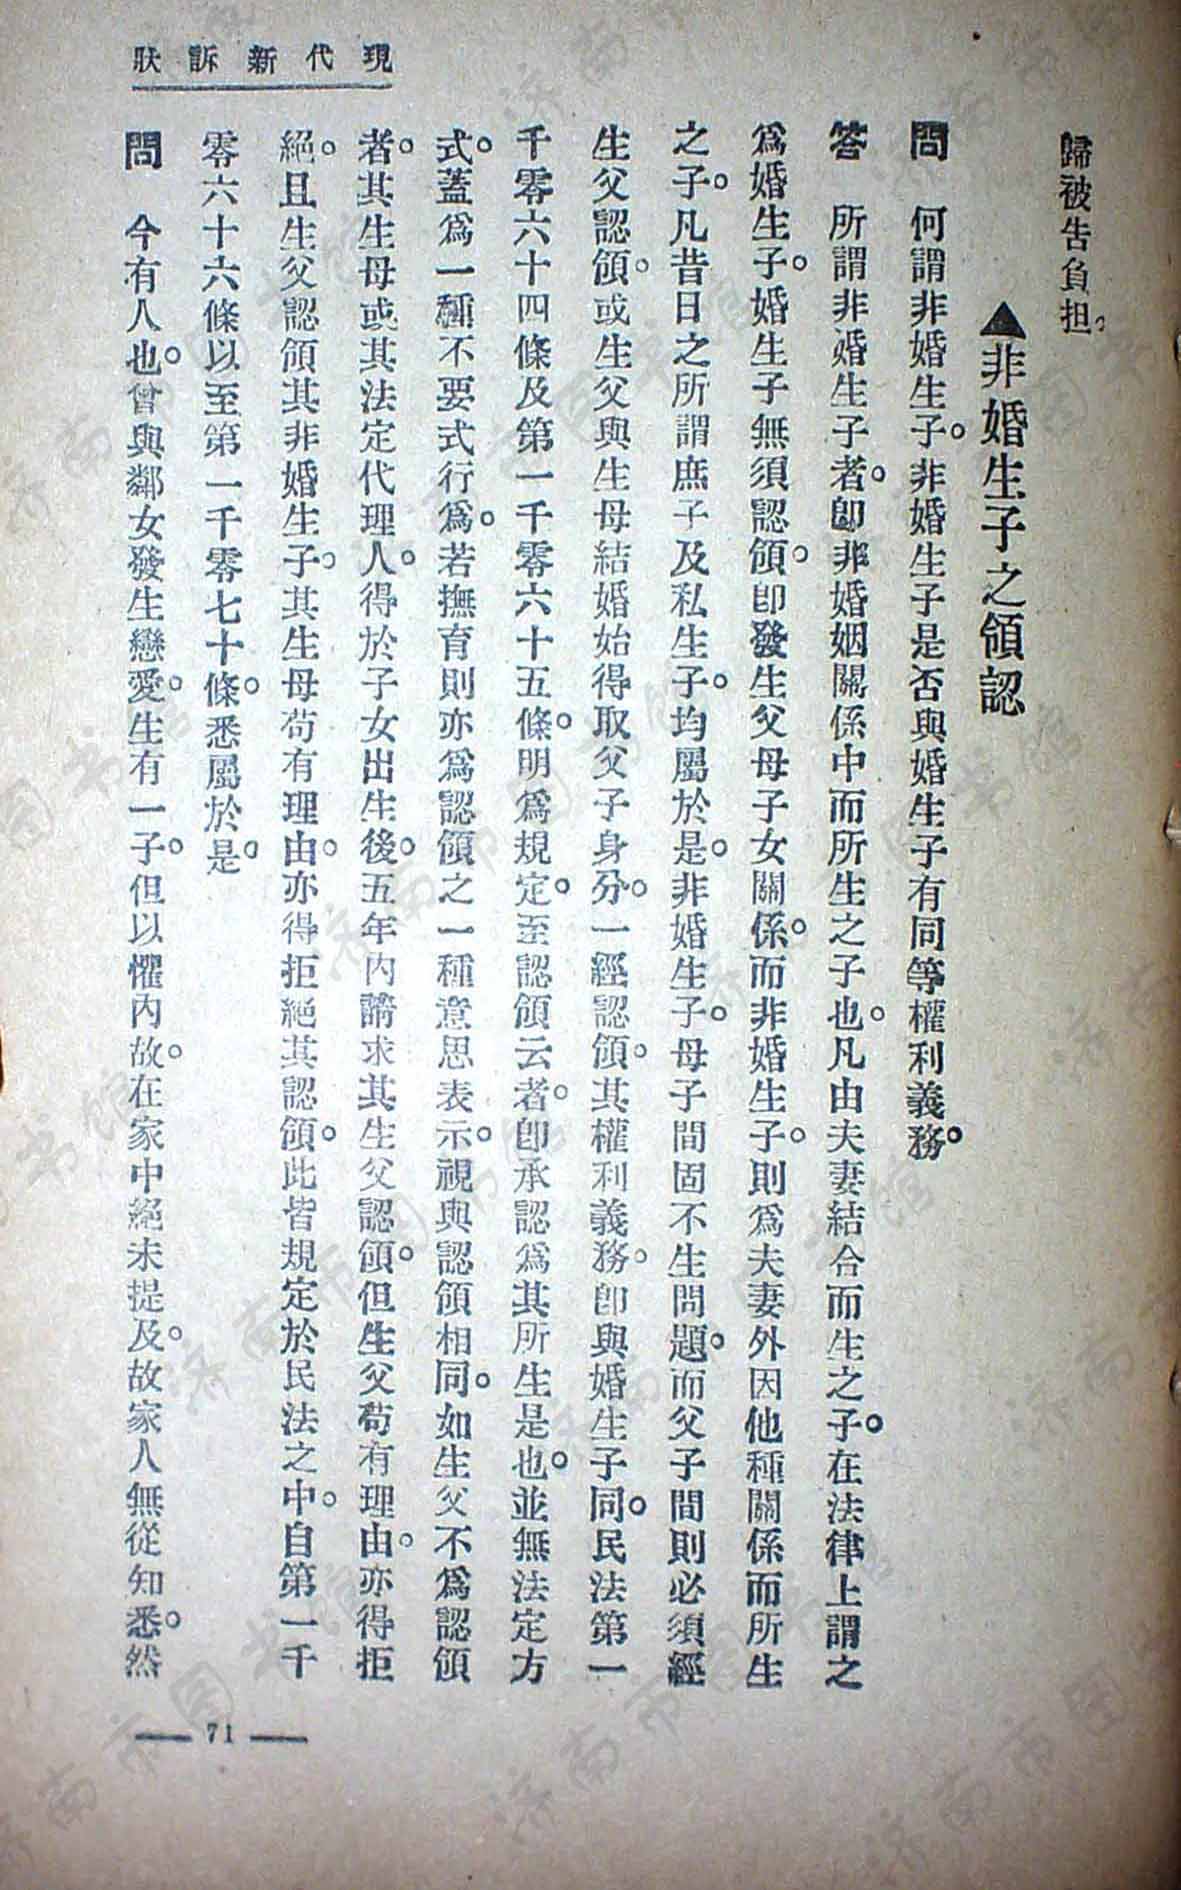 現代新訴狀
歸被告負担。
▲非婚生子之領認
問　何謂非婚生子。非婚生子是否與婚生子有同等權利義務。
答　所謂非婚生子者。卽非婚姻關係中而所生之子也。凡由夫妻結合而生之子。在法律上謂之
爲婚生子。婚生子無須認領。卽發生父母子女關係。而非婚生子。則爲夫妻外因他種關係而所生
之子。凡昔日之所謂庶子及私生子。均屬於是。非婚生子。母子間固不生問題。而父子間則必須經
生父認領。或生父與生母結婚始得取父子身分。一經認領。其權利義務。卽與婚生子同。民法第一
千零六十四條及第一千零六十五條。明爲規定。至認領云者。卽承認爲其所生是也。並無法定方
式。蓋爲一種不要式行爲。若撫育則亦爲認領之一種意思表示。視與認領相同。如生父不爲認領
者。其生母或其法定代理人。得於子女出生後。五年內請求其生父認領。但生父苟有理由。亦得拒
絕。且生父認領其非婚生子。其生母苟有理由。亦得拒絕其認領。此皆規定於民法之中。自第一千
零六十六條以至第一千零七十條。悉屬於是。
問　今有人也。曾與鄰女發生戀愛。生有一子。但以懼內故。在家中絕未提及。故家人無從知悉。然
— 71 —
济南市图书馆